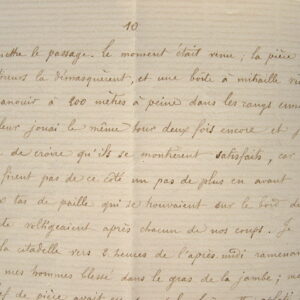 10
mettre le passage. le moment était venu, la pièce
la démasquèrent, et une boîte à mitraille vin
à 200 mètres à peine dans les rangs enne
leur jouai le même tour deux fois encore et j
de croire qu'ils se montrèrent satisfaits, car
firent pas de ce côté un pas de plus en avant
tas de paille qui se trouvaient sur le bord de
après chacun de nos coups. Je
la citadelle vers 2 heures de l'après midi ramenan
mes hommes blessé dans le gras de la jambe; me
de pièce avait